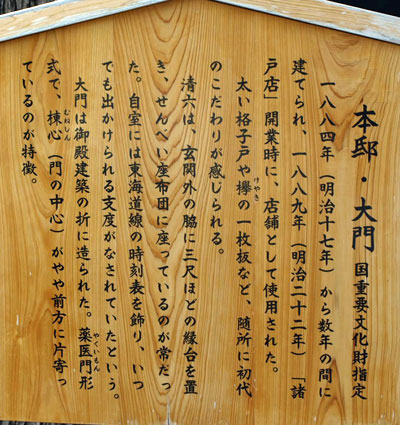 本邸・大門 国重要文化財指定
一八八四年（明治十七年）から数年の間に
建てられ、一八八九年（明治二十二年）「諸
戸店」開業時に、店舗として使用された。
太い格子戸や欅の一枚板など、随所に初代
のこだわりが感じられる。
清六は、玄関外の脇に三尺ほどの縁台を置
き、せんべい座布団に座っているのが常だっ
た。自室には東海道線の時刻表を飾り、いつ
でも出かけられる支度がなされていたという。
大門は御殿建築の折に造られた。薬医門形
式で、棟心（門の中心）がやや前方に片寄っ
ているのが特徴。
けやき
やくいもん
むねしん